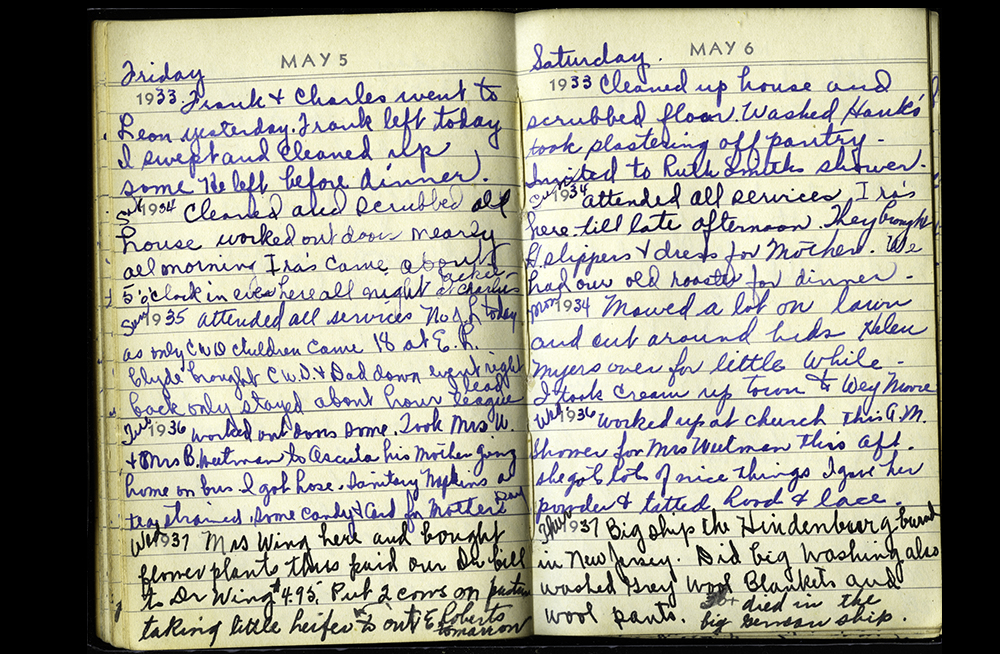 MAY 5
Friday
1933 Frank & Charles went to
Leon yesterday. Frank left today
I swept and cleaned up
some He left before dinner.
Sat 1934 Cleaned and scrubbed all
house worked out doors nearly
all morning Ira's came about
5 o'clock in eve here all night
Sun 1935 attended all services No J. L today
as only two children came 18 at E. L.
Clyde brought C.W.D. & Dad down went right
back only stayed about hour lead league
Tue 1936 worked out doors some. Took Mrs W.
& Mrs B. Weutman to Osceola his Mother going
home on bus. I got hose. Sanitary Napkins a
tea strainer. Some candy & Card for Mother's Day
Wed 1937 Mrs Wing here and bought
flower plants thus paid our Dr. bill
to Dr Wing $4.95. Put 2 cows on pasture
taking little heifer to out E Roberts
tomorrow
MAY 6
Saturday.
1933 Cleaned up house and
scrubbed floor. Washed Hank's
took plastering off pantry -
Invited to Ruth Smiths shower.
Sun 1934 attended all services Ira's
here till late afternoon. They brought
H. slippers & dress for Mother. We
had our old rooster for dinner -
Mon 1934 Mowed a lot on lawn
and cut around beds Helen
Myers over for little while -
I took cream up town to Wey Moore
Wed 1936 Worked up at church this A.M.
Shower for Mrs Weutman this aft.
she got lots of nice things I gave her
powder & tatted hood & lace -
Thu 1937 Big ship the Hindenbourg burnt
in New Jersey. Did big washing also
washed Grey Wool Blankets and
wool pants. 30+ died in the
big German ship.